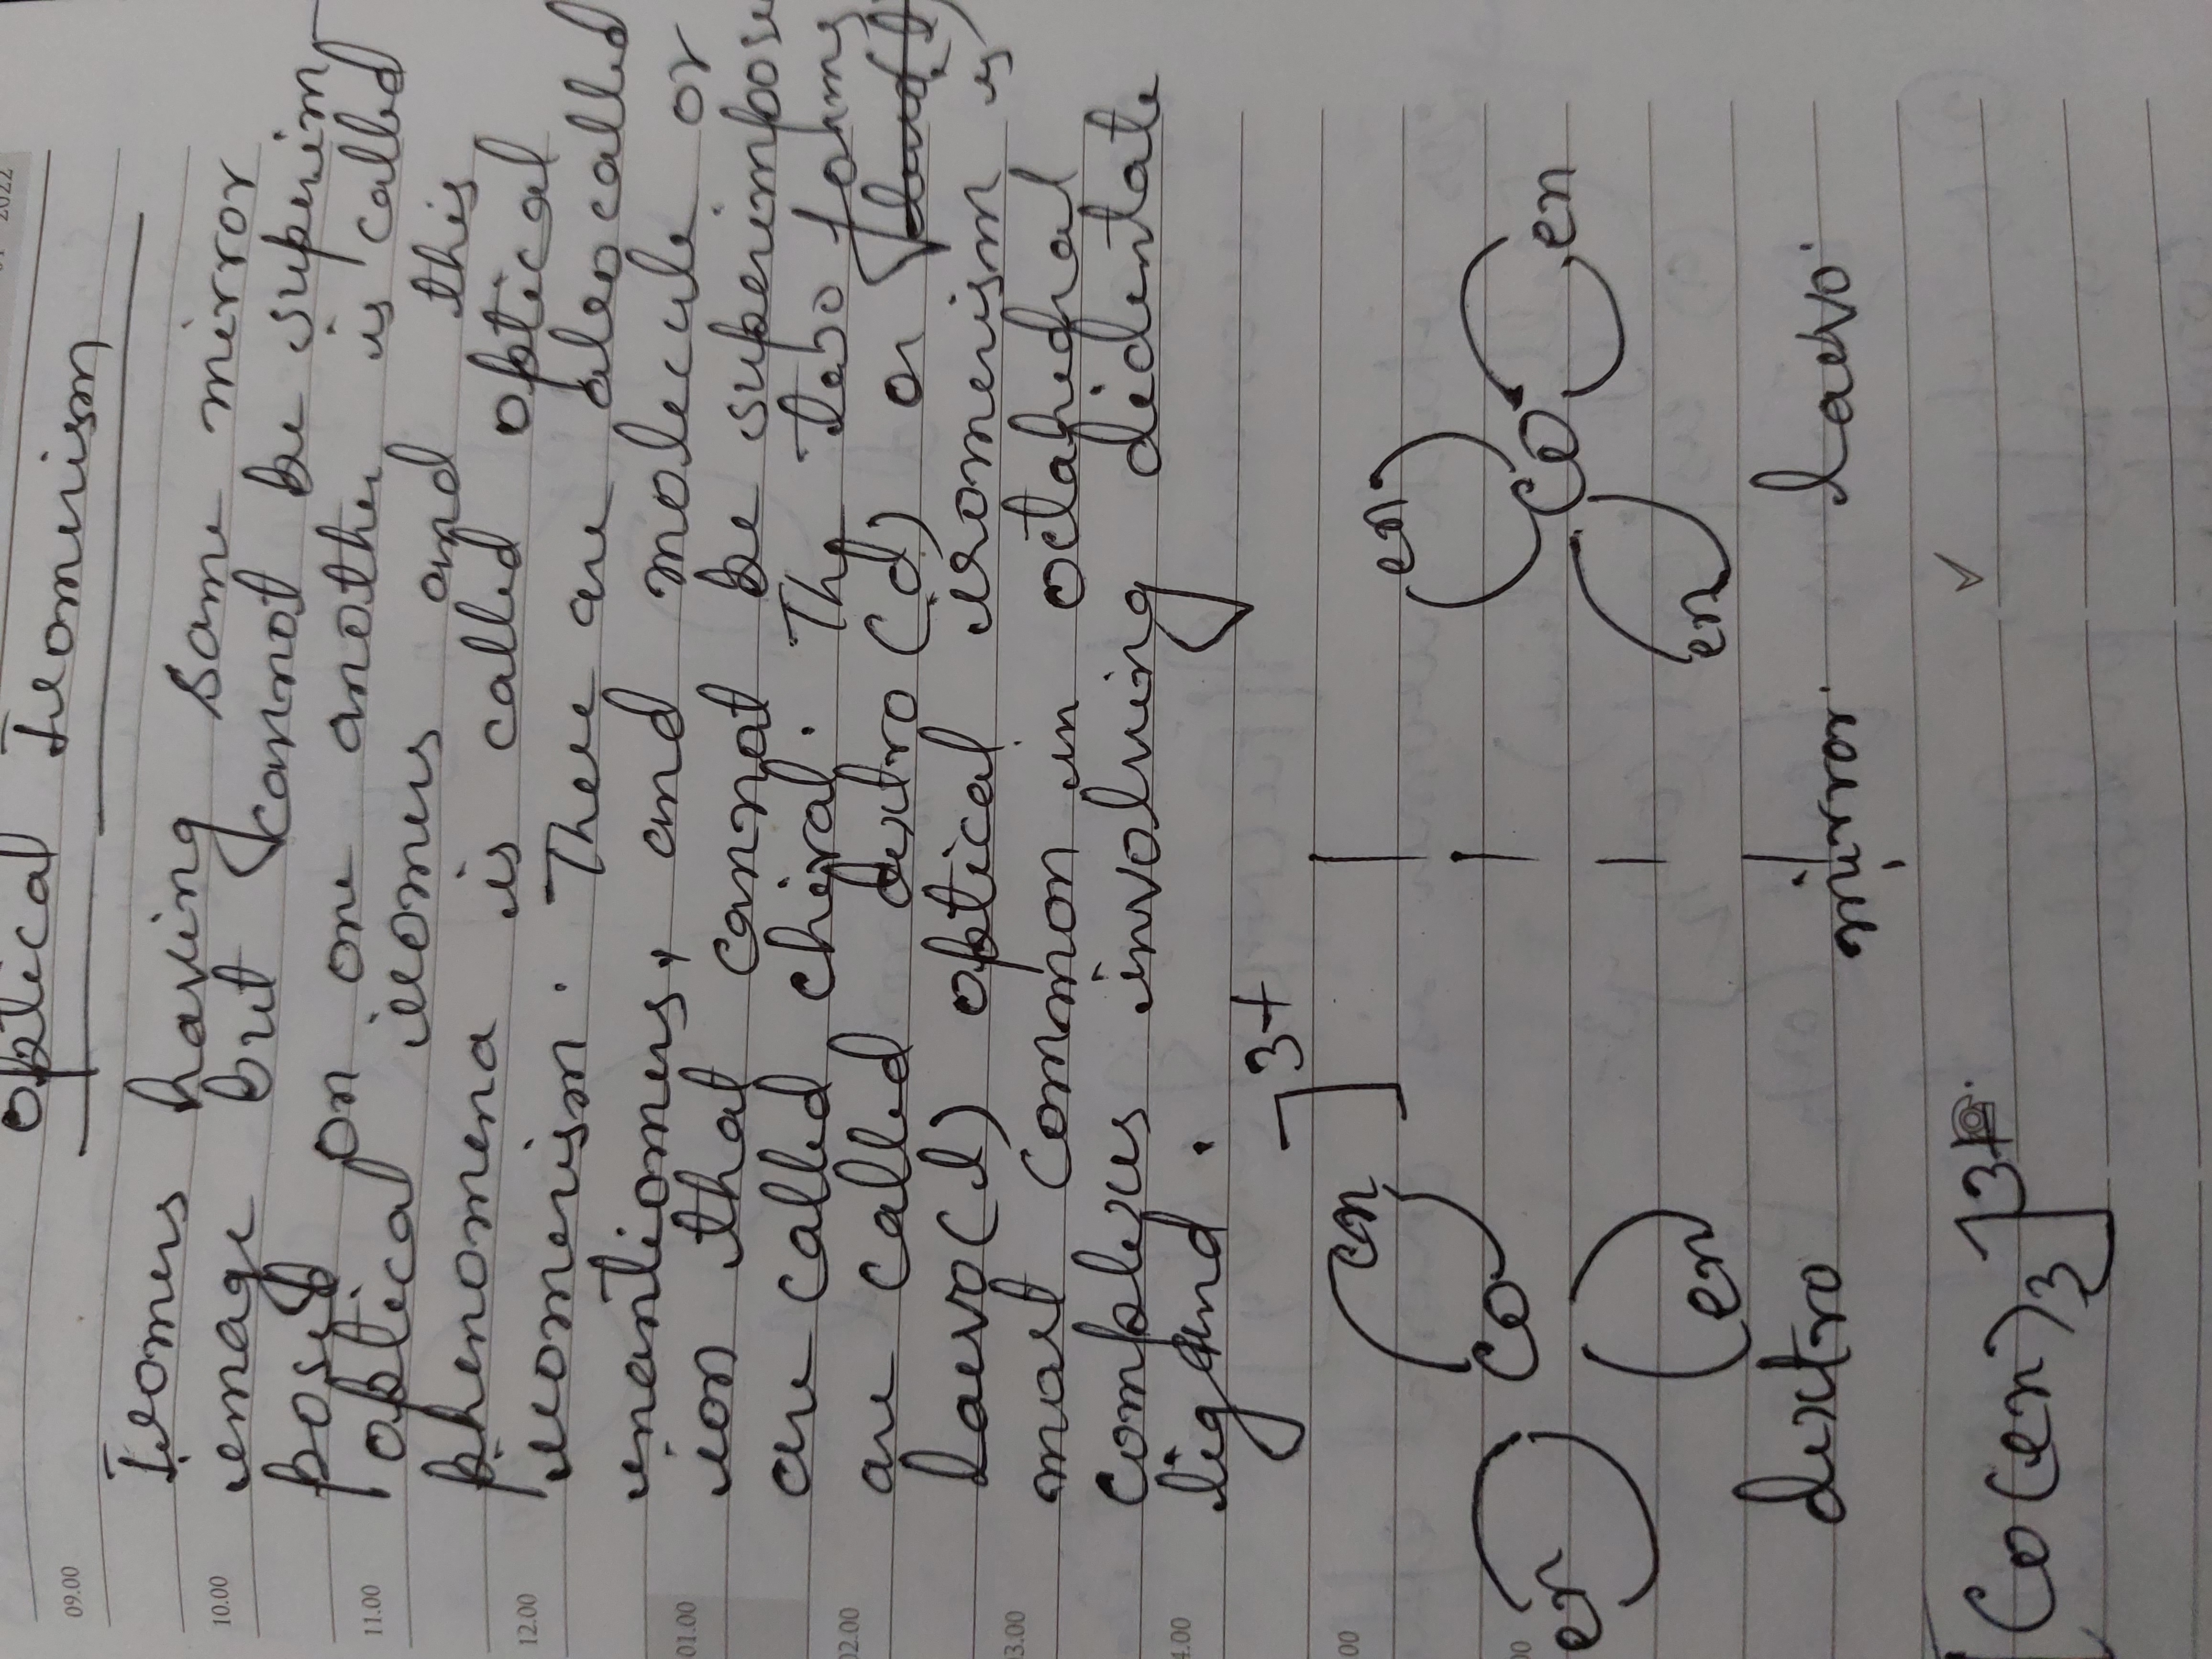 2022
Optical Isomerism
09.00
Isomers having same mirror
10.00
image but cannot be superim
pos on one another is called
11.00
optical isomers and this
phenomena is called optical
12.00
isomerism. These are also called
01.00
inantiomers, and molecule or
ion that cannot be superimpose
are called chiral. The two forms
02.00
are called dextro (d) or
Laevo (l) optical isomerism is
03.00
most common in octahedral
complexes involving didentate
4.00
ligand.
]3+
en en
00
en Co Co en
00
en en
dextro mirror laevo.
[Co(en)3]3+